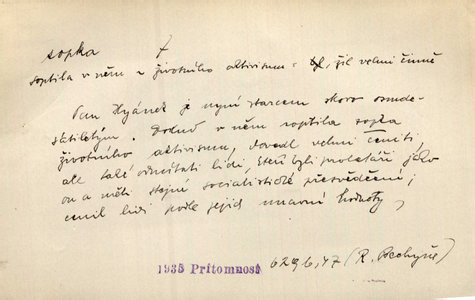 sopka 7
soptila v něm z životního aktivismu: žil velmi činně
Pan Hyánek je nyní starcem skoro osmde-
sátiletým. Dokud v něm soptila sopka
životního aktivismu, dovedl velmi ceniti,
ale také odmítati lidi, kteří byli proletáři jako
on a měli stejné socialistické přesvědčení;
cenil lidi podle jejich mravní hodnoty,
1935 Přítomnost 629/6, 17 (R. Bechyně)